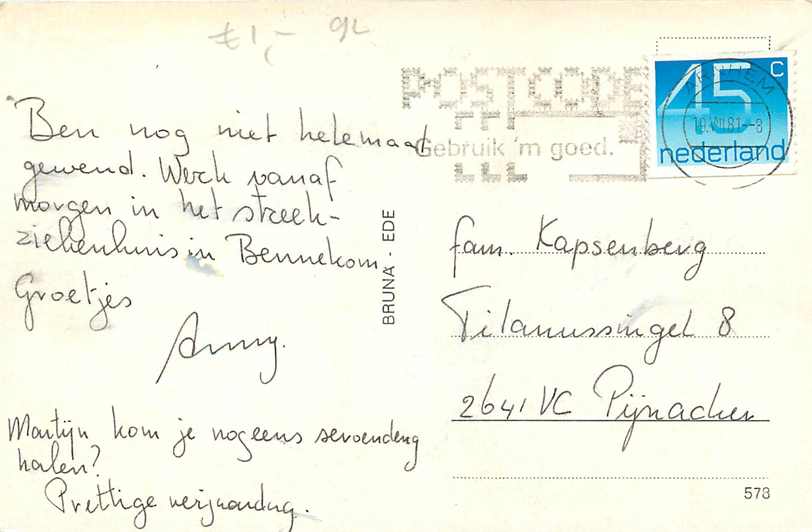 £1,- 92
Ben nog niet helemaal
gewend. Werk vanaf
morgen in het streek-
ziekenhuis in Bennekom.
Groetjes
Anny.
Martijn, kom je nog eens
halen?
Prettige verjaardag.
BRUNA - EDE
POSTCODE
Gebruik 'm goed.
ARNHEM
10.VII.81.-8
45 C
nederland
fam. Kapsenberg
Tilanussingel 8
2641 VC Pijnacker
573